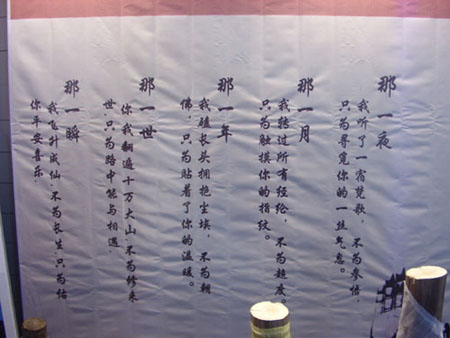 那一夜
我听了一宿梵歌,不为参悟,
只为寻觅你的一丝气息。
那一月
我转过所有经纶,不为超度,
只为触摸你的指纹。
那一年
我磕长头拥抱尘埃,不为朝
佛,只为贴着了你的温暖。
那一世
你我翻遍十万大山,不为修来
世,只为路中能与相遇.
那一瞬
我飞升成仙,不为长生,只为佑
你平安喜乐.